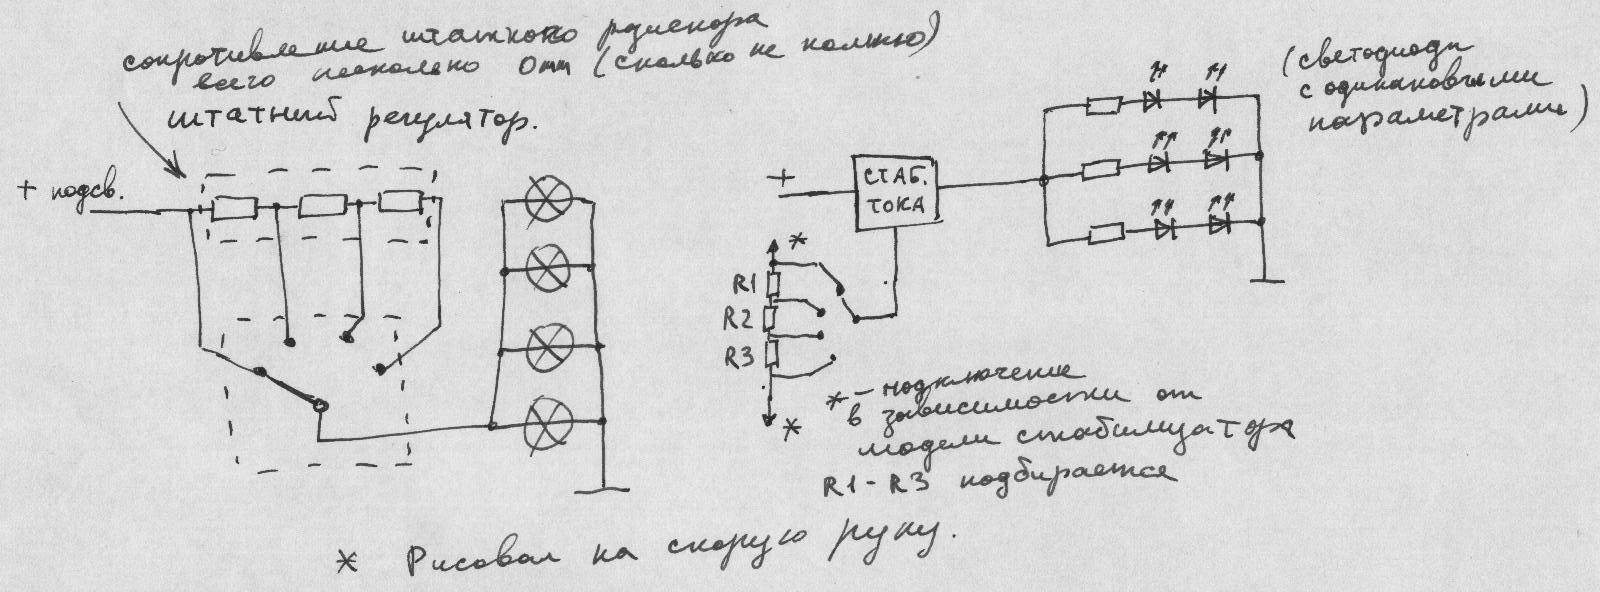 сопротивление штатного резистора
всего несколько Омм (сколько не помню)
штатный регулятор.
+ подсв.
+
СТАБ.
ТОКА
(светодиоды
с одинаковыми
параметрами)
*
R1
R2
R3
*
* - подключение
в зависимости от
модели стабилизатора
R1 - R3 подбирается
* Рисовал на скорую руку.